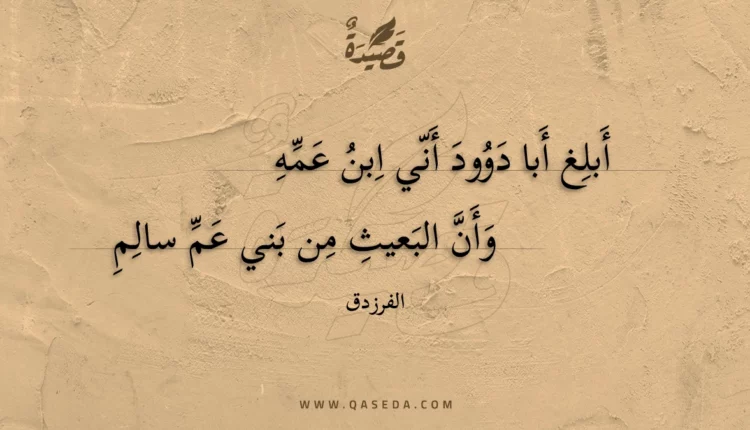 قَصِيدَةٌ
أَبلِغ أَبا دَوُودَ أَنّي اِبنُ عَمِّهِ
وَأَنَّ البَعيثِ مِن بَني عَمِّ سالِمِ
الفرزدق
WWW.QASEDA.COM